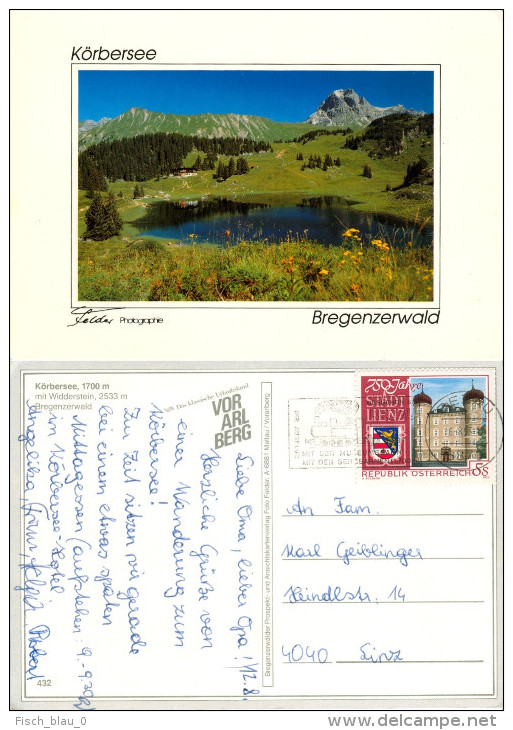 Körbersee
Felder Photographie
Bregenzerwald
Körbersee, 1700 m
mit Widderstein, 2533 m
Bregenzerwald
Das klassische Urlaubsland
VOR
ARL
BERG
Liebe Oma, lieber Opa! 12.8.
Herzliche Grüße von
einer Wanderung zum
Körbersee!
Zur Zeit sitzen wir gerade
bei einem etwas späten
Mittagessen (aufstehen: 9.-9.30h)
im Körbersee-Hotel
Angelika, Franz, Helga, Robert
432
Bregenzerwälder Prospekt- und Ansichtskartenverlag Foto Felder, A 6881 Mellau / Vorarlberg
750 Jahre
STADT
LIENZ
REPUBLIK ÖSTERREICH
8s
An Fam.
Karl Geiblinger
Heindlstr. 14
4040 Linz
Fisch_blau_0
www.delcampe.net